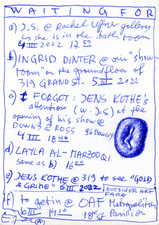 WAITING FOR
a) J.S. @ Rachel Uffner gallery
(she is in the back room)
4 III 2022 17 53
b) INGRID DINTER @ "show
room" on the ground floor of
319 GRAND ST. 5 III 2022
c) I FORGOT: JENS KOTHE'S
attention (w. J.S.) at the
opening of his show @
DOWNS & ROSS 96 Bowery
4 III 18 40
d) LAYLA AL-MARZOOQI
same as b) 16
e) JENS KOTHE @ 319 to see "GOLD
& GRIME" 6 III 2022
OUTSIDER ART
FAIR
f) to get in @ OAF METROPOLITAN
6 III 14 20 18th St Pavilion